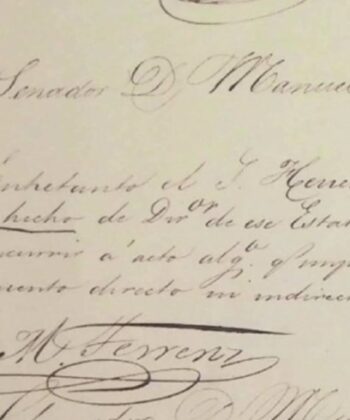 Senador D. Manuel
Entretanto el S. Herre
hecho de Dor. de ese Esta
currir á acto algo. q. imp
mento directo ni indirec
M. Herrera
Senador D. M